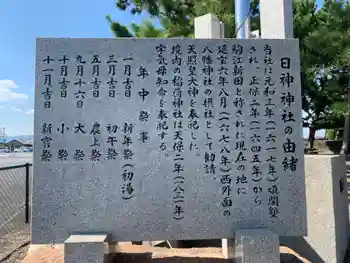 日神神社の由緒
当社は元和三年(一六一七年)頃開塾
され、正保二年(一六四五年)から
駒江新田と称された現在の地に
延宝六年(一六七八年)西外面の
八幡神社の摂社として勧請、
天照皇大神を奉祀した。
境内の稲荷神社は天保二年(一八三一年)
宇気母知命を奉祀する。
年中祭事
一月吉日 新年祭(初湯)
三月吉日 初午祭
五月吉日 農上祭
九月十六日 大祭
十月吉日 小祭
十二月吉日 新嘗祭